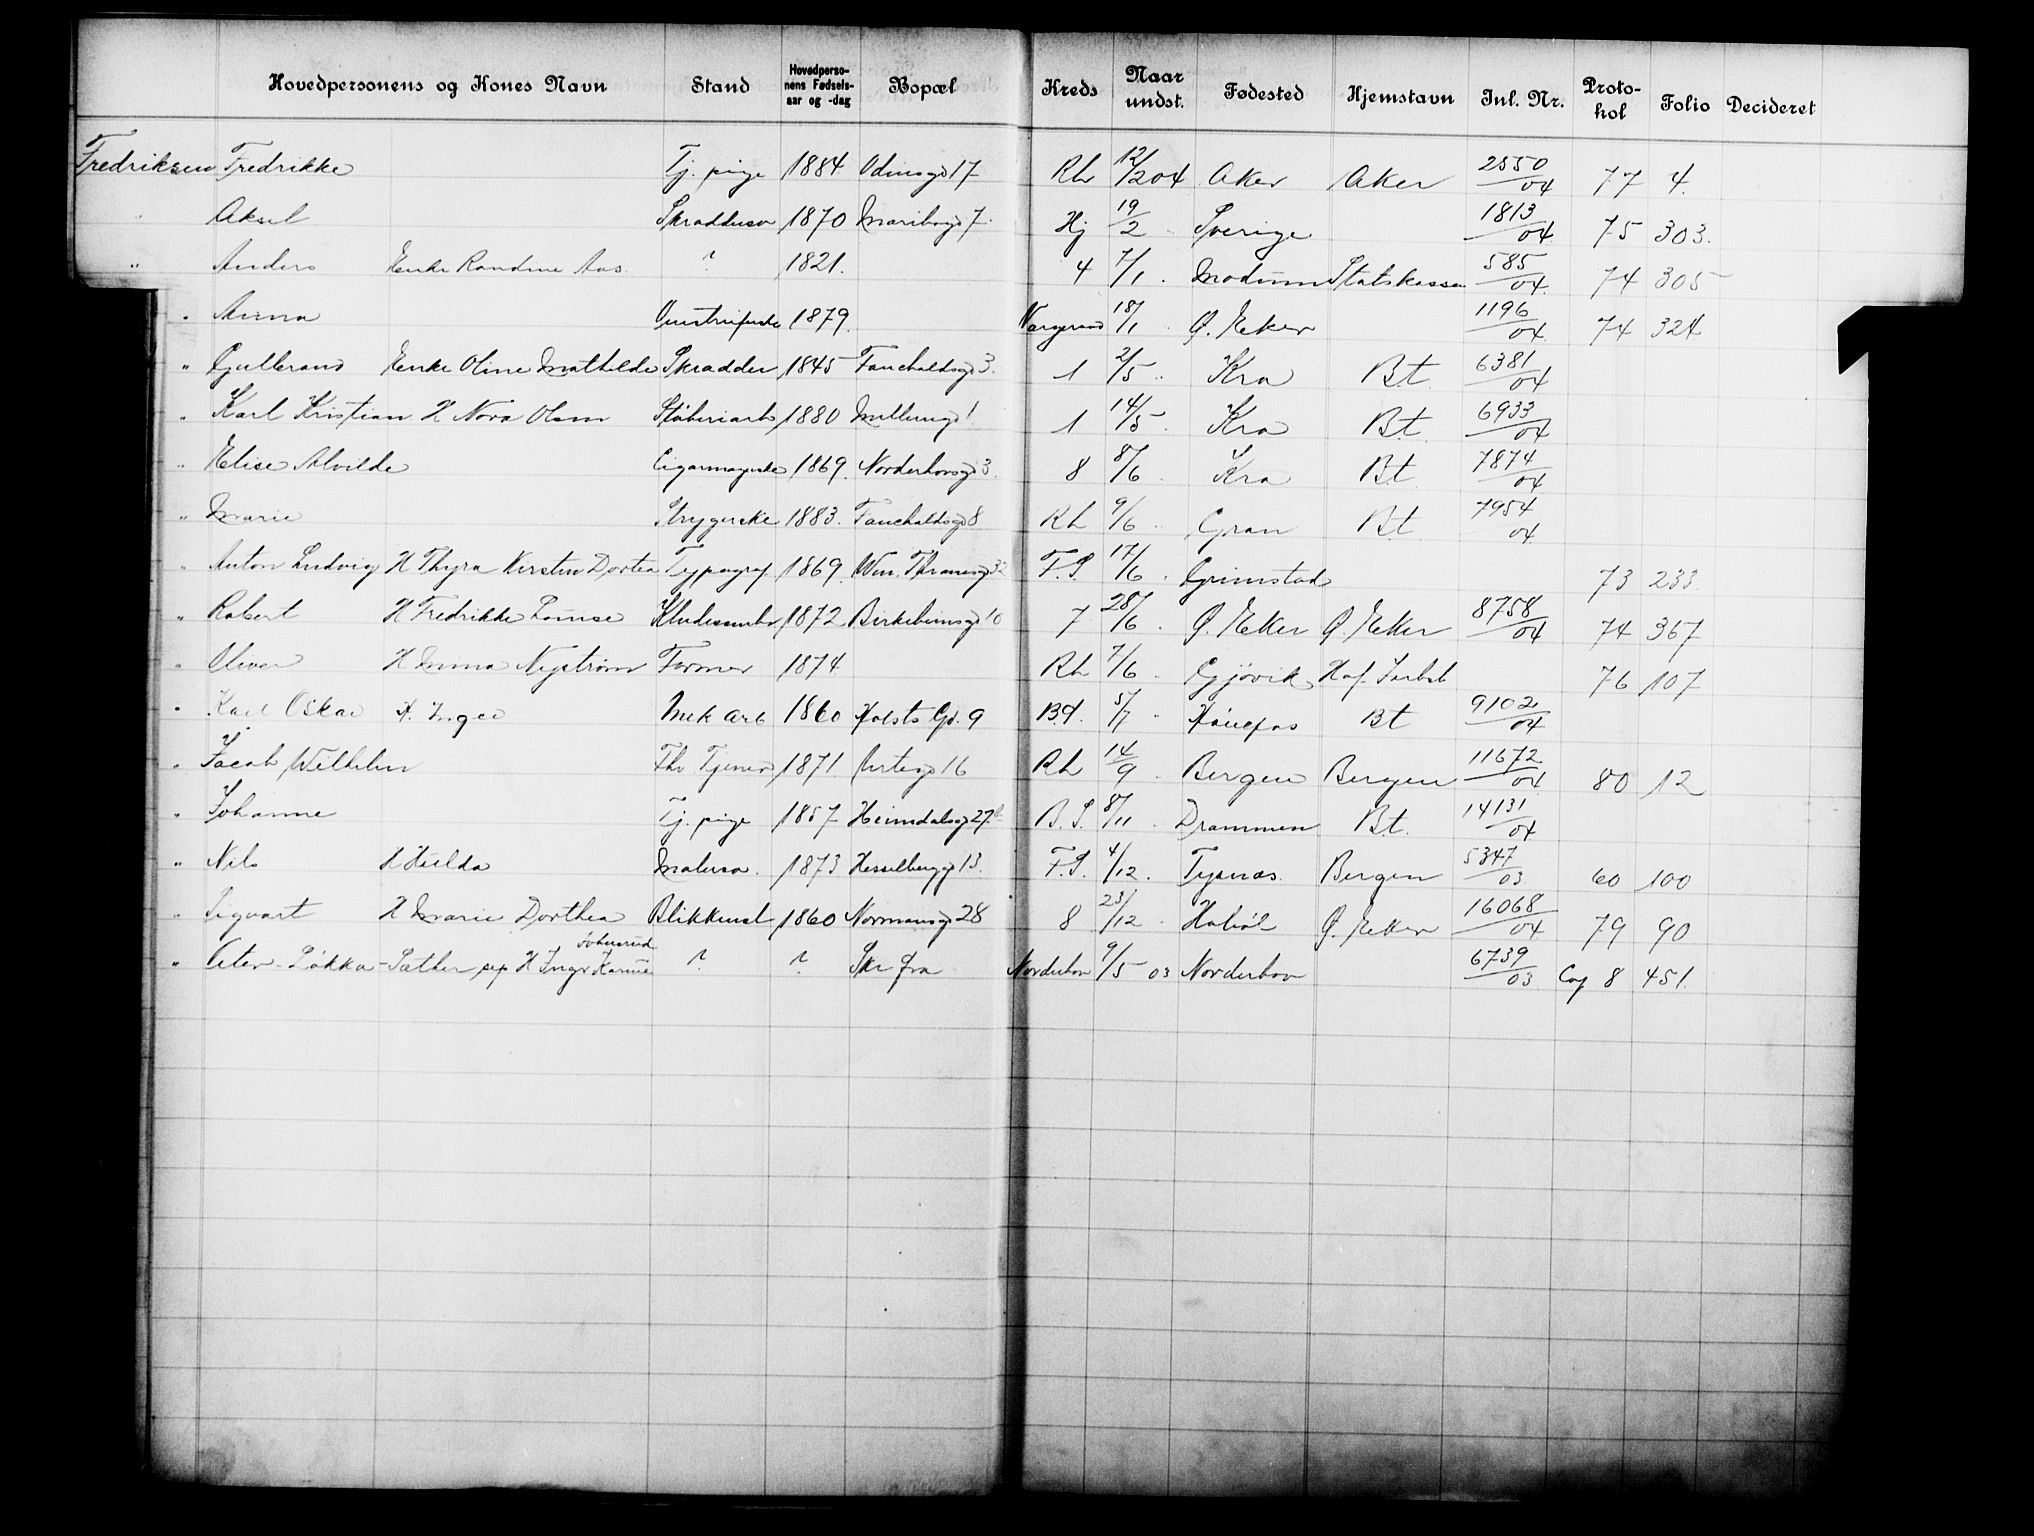 Hovedpersonens og Kones Navn Stand Hovedperso-nens Fødsels-aar og -dag Bopæl Kreds Naar undst. Fødested Hjemstavn Inl. Nr. Proto-kol Folio Decideret
Fredriksen Fredrikke Tj. pige 1884 Odinsgd 17 Rh 12/2 04 Aker Aker 2550/04 77 4.
" Aksel 1870 Maribogd 7. Hj 19/2 " Sverige 1813/04 75 303.
" Anders Enke Randine Aas. ? 1821. 4 7/1 " Modum Statskassen 585/04 74 305
" Anna 1879. 18/1 " Ø. Eker 1196/04 74 324
" Gulbrand Enke Oline Mathilde Skrædder 1845 Fauchaldsgd 3. 1 2/5 " Kra Bt. 6381/04
" Karl Kristian H Nora Olsen Støberiarb 1880 1 1 14/5 " Kra Bt. 6933/04
" Elise Alvilde 1869. Norderhovsgd 3. 8 8/6 " Kra Bt. 7874/04
" Marie Strygerske 1883. Fauchaldsgd 8 Rh 9/6 " Gran Bt. 7954/04
" Anton Ludvig H Thyra Kirstin Dortea Typograf 1869. Wm. Thranesgd 32 F.S. 17/6 " Grimstad 73 233.
" Robert H Fredrikke Louise Kludesamler 1872 Birkebeinsgd 10 7 28/6 " Ø. Eker Ø. Eker 8758/04 74 367
" Oliver H Anna Nystrøm Former 1874 Rh 7/6 " Gjøvik 76 107
" Karl Oskar H. Inger Mek arb 1860 Holsts Gd. 9 B.S. 5/7 " Hønefos Bt 9102/04
" Jacob Wilhelm Fhv Tjener 1871 Urtegd 16 Rh 14/9 " Bergen Bergen 11672/04 80 12
" Johanne Tj. pige 1857 Heimdalsgd 27 B.S. 8/11 " Drammen Bt. 14131/04
" Nils H Hulda Malersv. 1873 Hesselberggd 13. F.S. 4/12. Tysnæs. Bergen 5347/03 60 100
" Sigvart H Marie Dorthea Blikkensl 1860 Normansgd 28 8 23/12 " Hobøl Ø. Eker 16068/04 79 90
" Peter Løkka-Sæther sep H Inger Karine ? ? Skr fra Norderhov 9/5 03 Norderhov 6739/03 Cop 8 451.